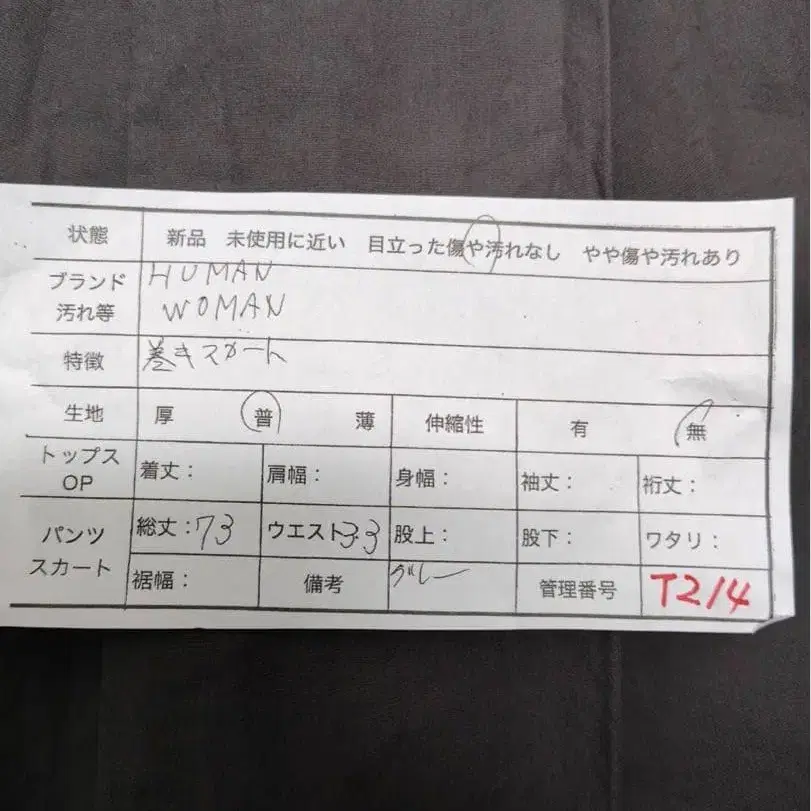 状態 新品 未使用に近い 目立った傷や汚れなし やや傷や汚れあり
ブランド HUMAN
汚れ等 WOMAN
特徴 巻きスカート
生地 厚 普 薄 伸縮性 有 無
トップス
OP 着丈: 肩幅: 身幅: 袖丈: 裄丈:
パンツ
スカート
総丈:73 ウエスト33 股上: 股下: ワタリ:
裾幅: 備考 グレー 管理番号 T214